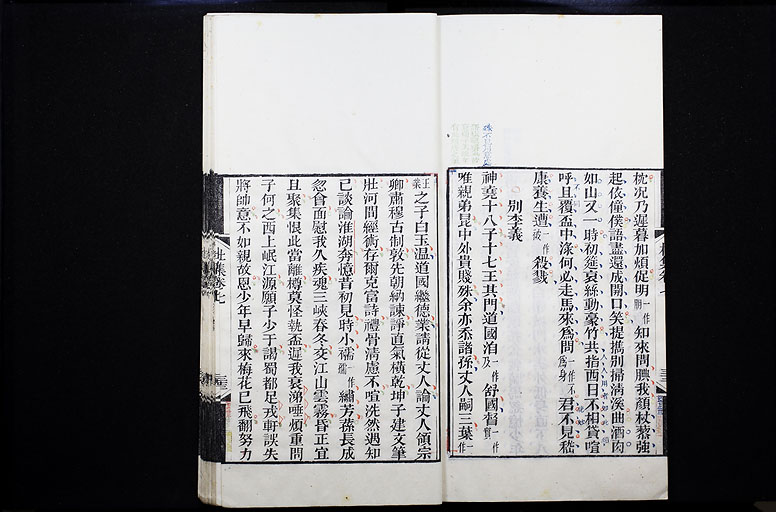 枕況乃遲暮加煩促明一作朋知來問腆我顏杖藜強
起依僮僕語盡還成開口笑提攜別掃清溪曲酒肉
如山又一時初筵哀絲動豪竹共指西日不相貸喧
呼且覆盃中淥何必走馬來為問一作不為身君不見嵇
康養生遭一作被殺戮
別李義
神堯十八子十七王其門道國洎一作及舒國督一作實
唯親弟昆中外貴賤殊余亦忝諸孫丈人嗣三葉一作
王業之子白玉溫道國繼德業請從丈人論丈人領宗
卿肅穆古制敦先朝納諫諍直氣橫乾坤子建文筆
壯河間經術存爾克富詩禮骨清慮不喧洗然遇知
己談論淮湖奔憶昔初見時小襦一作繻繡芳蓀長成
忽會面慰我久疾魂三峽春冬交江山雲霧昏正宜
且聚集恨此當離樽莫怪執盃遲我衰涕唾煩重問
子何之西上岷江源願子少干謁蜀都足戎軒誤失
將帥意不如親故恩少年早歸來梅花已飛翻努力
杜集卷七